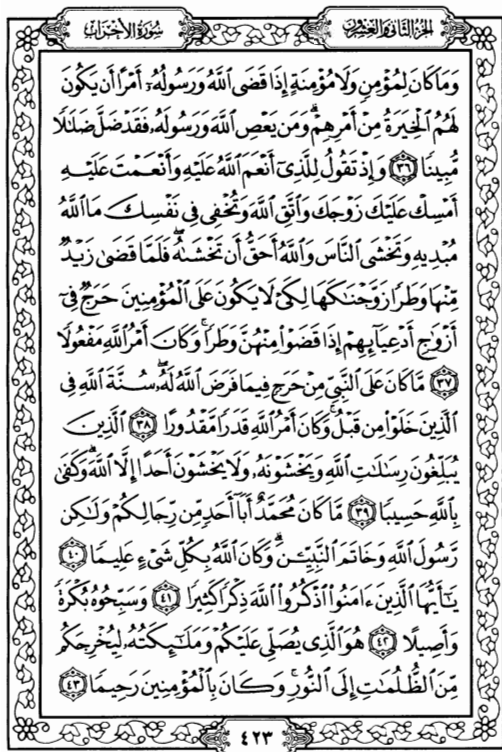 الجزء الثاني والعشرون
سورة الأحزاب
وَمَا كَانَ لِمُؤْمِنٍ وَلَا مُؤْمِنَةٍ إِذَا قَضَى ٱللَّهُ وَرَسُولُهُۥٓ أَمْرًا أَن يَكُونَ
لَهُمُ ٱلْخِيَرَةُ مِنْ أَمْرِهِمْ ۗ وَمَن يَعْصِ ٱللَّهَ وَرَسُولَهُۥ فَقَدْ ضَلَّ ضَلَٰلًا
مُّبِينًا ﴿٣٦﴾ وَإِذْ تَقُولُ لِلَّذِىٓ أَنْعَمَ ٱللَّهُ عَلَيْهِ وَأَنْعَمْتَ عَلَيْهِ
أَمْسِكْ عَلَيْكَ زَوْجَكَ وَٱتَّقِ ٱللَّهَ وَتُخْفِى فِى نَفْسِكَ مَا ٱللَّهُ
مُبْدِيهِ وَتَخْشَى ٱلنَّاسَ وَٱللَّهُ أَحَقُّ أَن تَخْشَىٰهُ ۖ فَلَمَّا قَضَىٰ زَيْدٌ
مِّنْهَا وَطَرًا زَوَّجْنَٰكَهَا لِكَىْ لَا يَكُونَ عَلَى ٱلْمُؤْمِنِينَ حَرَجٌ فِىٓ
أَزْوَٰجِ أَدْعِيَآئِهِمْ إِذَا قَضَوْا۟ مِنْهُنَّ وَطَرًا ۚ وَكَانَ أَمْرُ ٱللَّهِ مَفْعُولًا
﴿٣٧﴾ مَّا كَانَ عَلَى ٱلنَّبِىِّ مِنْ حَرَجٍ فِيمَا فَرَضَ ٱللَّهُ لَهُۥ ۖ سُنَّةَ ٱللَّهِ فِى
ٱلَّذِينَ خَلَوْا۟ مِن قَبْلُ ۚ وَكَانَ أَمْرُ ٱللَّهِ قَدَرًا مَّقْدُورًا ﴿٣٨﴾ ٱلَّذِينَ
يُبَلِّغُونَ رِسَٰلَٰتِ ٱللَّهِ وَيَخْشَوْنَهُۥ وَلَا يَخْشَوْنَ أَحَدًا إِلَّا ٱللَّهَ ۗ وَكَفَىٰ
بِٱللَّهِ حَسِيبًا ﴿٣٩﴾ مَّا كَانَ مُحَمَّدٌ أَبَآ أَحَدٍ مِّن رِّجَالِكُمْ وَلَٰكِن
رَّسُولَ ٱللَّهِ وَخَاتَمَ ٱلنَّبِيِّـۧنَ ۗ وَكَانَ ٱللَّهُ بِكُلِّ شَىْءٍ عَلِيمًا ﴿٤٠﴾
يَٰٓأَيُّهَا ٱلَّذِينَ ءَامَنُوا۟ ٱذْكُرُوا۟ ٱللَّهَ ذِكْرًا كَثِيرًا ﴿٤١﴾ وَسَبِّحُوهُ بُكْرَةً
وَأَصِيلًا ﴿٤٢﴾ هُوَ ٱلَّذِى يُصَلِّى عَلَيْكُمْ وَمَلَٰٓئِكَتُهُۥ لِيُخْرِجَكُم
مِّنَ ٱلظُّلُمَٰتِ إِلَى ٱلنُّورِ ۚ وَكَانَ بِٱلْمُؤْمِنِينَ رَحِيمًا ﴿٤٣﴾
٤٢٣